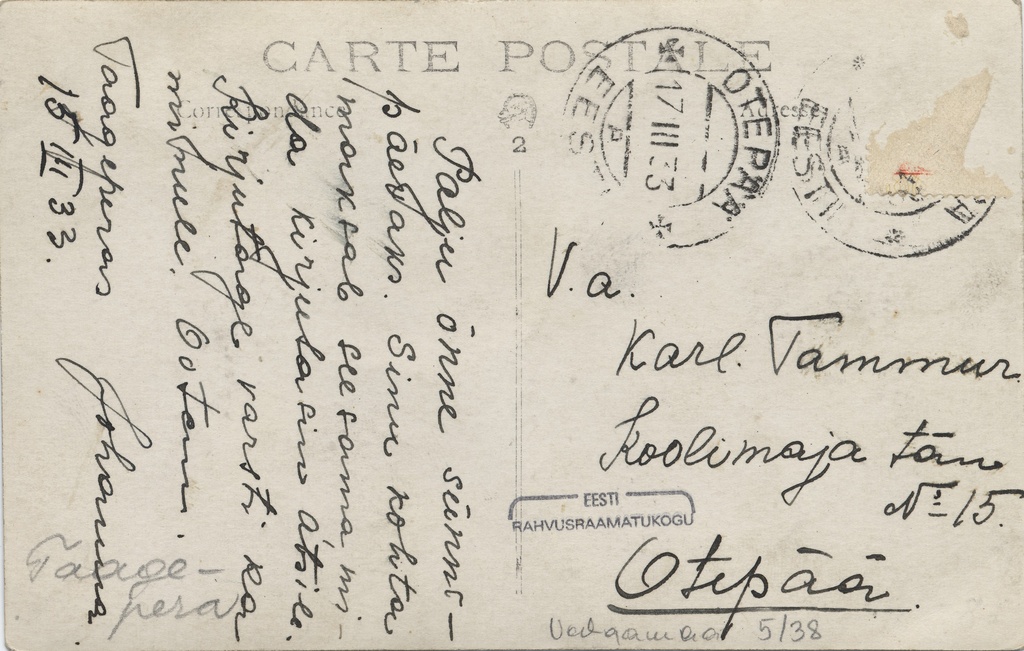 CARTE POSTALE
Correspondance
2
OTEPÄÄ
17 III 33
EESTI
Palju õnne sünni-
päevaks. Sinu kohta
maksab seesama mi-
da kirjutasin ätsile.
Kirjutage varsti ka
minule. Ootan.
Johanna
Taageperas
15 III 33.
V.a.
Karl. Tammur
Koolimaja tän
№ 15.
Otepää
EESTI
RAHVUSRAAMATUKOGU
Taage-
pera
Valgamaa 5/38